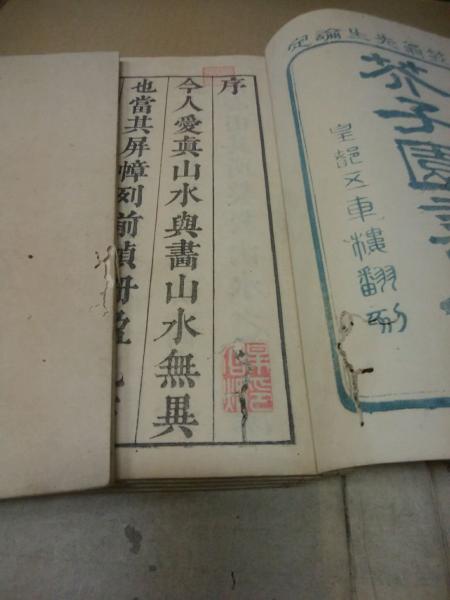 翁先生論定
芥子園畫
皇邑五車樓翻刻
序
今人愛真山水與畫山水無異
也當其屏幛列前幀冊盈